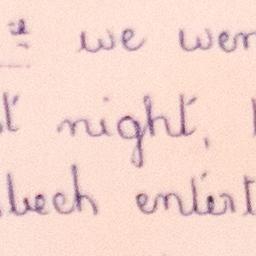 we wer
t night,
bech entert